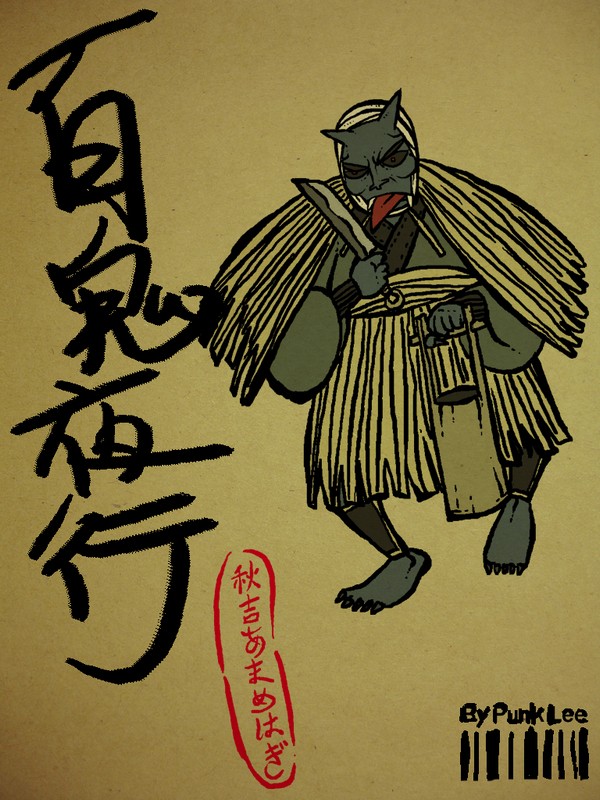 百鬼夜行
秋吉あまめはぎ
By Punk Lee